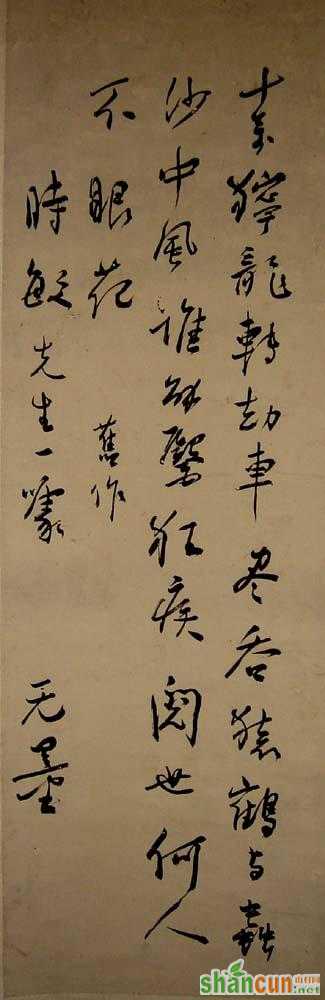 十獰龍轉劫車尽吞猿鶴与蟲
沙中風誰解醫狂疾閱世何人
不眼花 舊作
時敏先生一噱 无量
shancun
山村网
.net